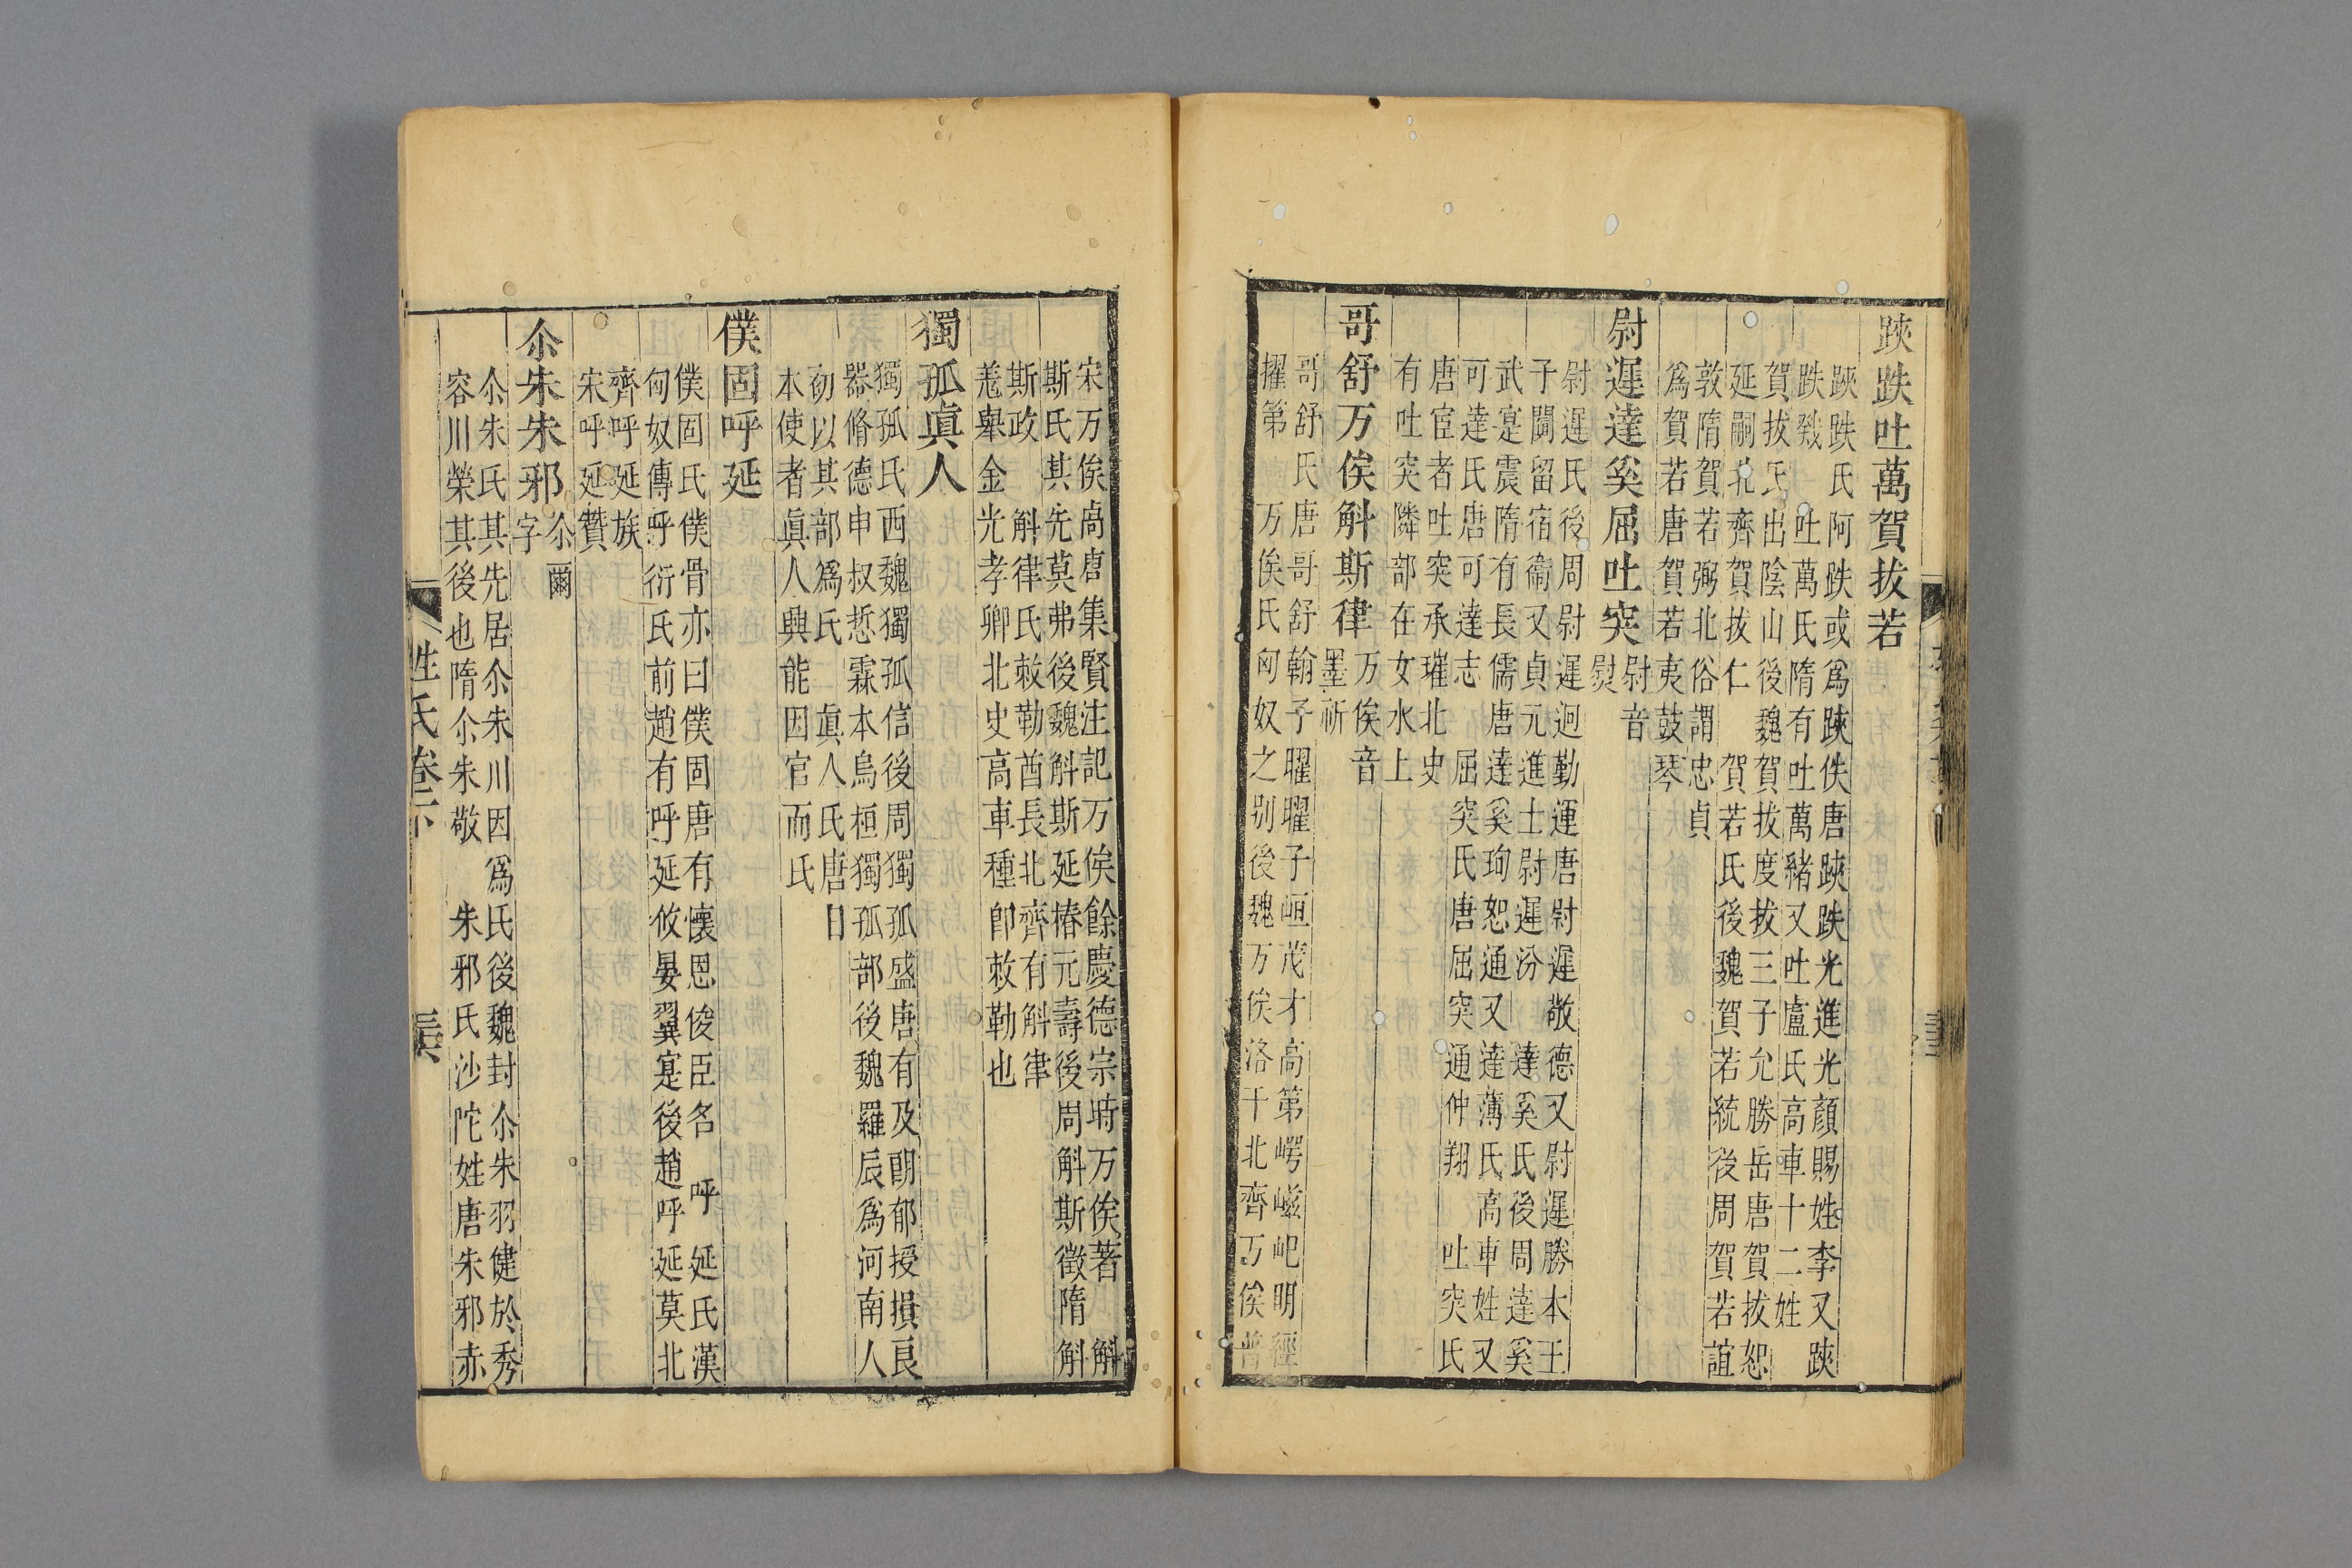 䟮跌吐萬賀拔若
䟮跌氏阿跌或爲䟮佚唐䟮跌光進光顏賜姓李又䟮
跌戣 吐萬氏隋有吐萬緒又吐盧氏高車十二姓
賀拔氏出陰山後魏賀拔度拔三子允勝岳唐賀拔恕
延嗣北齊賀拔仁 賀若氏後魏賀若統後周賀若誼
敦隋賀若弼北俗謂忠貞
爲賀若唐賀若夷鼓琴
尉遲達奚屈吐突 尉音
熨
尉遲氏後周尉遲迥勤運唐尉遲敬德又尉遲勝本王
子闐留宿衞又貞元進士尉遲汾 達奚氏後周達奚
武寔震隋有長儒唐達奚珣恕通又達薄氏高車姓又
可達氏唐可達志 屈突氏唐屈突通仲翔 吐突氏
唐宦者吐突承璀北史
有吐突隣部在女水上
哥舒万俟斛斯律 万俟音
墨祈
哥舒氏唐哥舒翰子曜曜子峘茂才高第崿嵫屺明經
擢第 万俟氏匈奴之別後魏万俟洛干北齊万俟普
宋万俟卨唐集賢注記万俟餘慶德宗時万俟著 斛
斯氏其先莫弗後魏斛斯延椿元壽後周斛斯徵隋斛
斯政 斛律氏敕勒酋長北齊有斛律
羗舉金光孝卿北史高車種卽敕勒也
獨孤眞人
獨孤氏西魏獨孤信後周獨孤盛唐有及朗郁授損良
器脩德申叔悊霖本烏桓獨孤部後魏羅辰爲河南人
初以其部爲氏 眞人氏唐日
本使者眞人興能因官而氏
僕固呼延
僕固氏僕骨亦曰僕固唐有懷恩俊臣名 呼延氏漢
匈奴傳呼衍氏前趙有呼延攸晏翼寔後趙呼延莫北
齊呼延族
宋呼延贊
尒朱朱邪 尒爾
字
尒朱氏其先居尒朱川因爲氏後魏封尒朱羽健於秀
容川榮其後也隋尒朱敞 朱邪氏沙陀姓唐朱邪赤
姓氏卷下